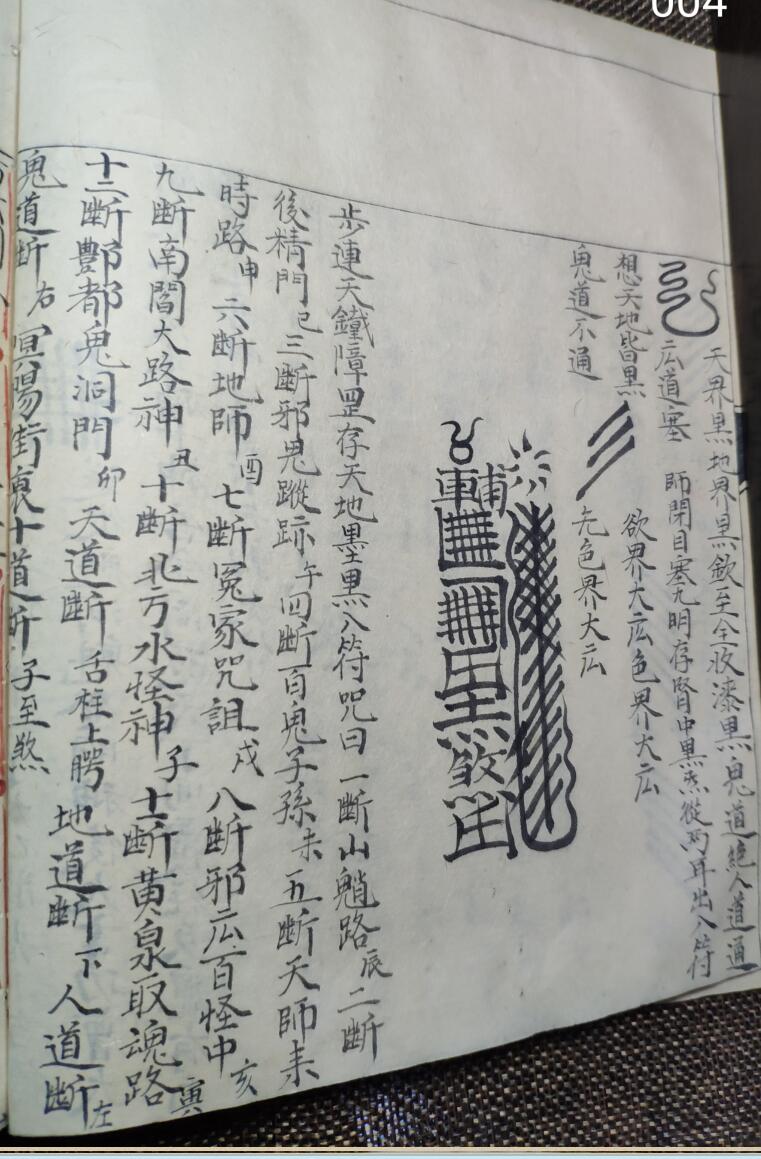 004
天界黒地界黒欽至全收漆黒鬼道絶人道通
広道塞 師閉目塞九明存腎中黒炁從两耳出入符
想天地皆黒 欲界大広色界大広
鬼道不通 旡色界大広
步連天鐵障罡存天地墨黒入符咒曰一断山魈路辰二断
後精門巳三断邪鬼蹤跡午四断百鬼子孫未五断天師耒
時路申六断地師酉七断冤家咒詛戌八断邪広百怪中亥
九断南閻大路神丑十断北方水怪神子十一断黄泉取魂路寅
十二断酆都鬼洞門卯天道断舌柱上腭地道断下人道断左
鬼道断右冥陽街裏十道断子至煞